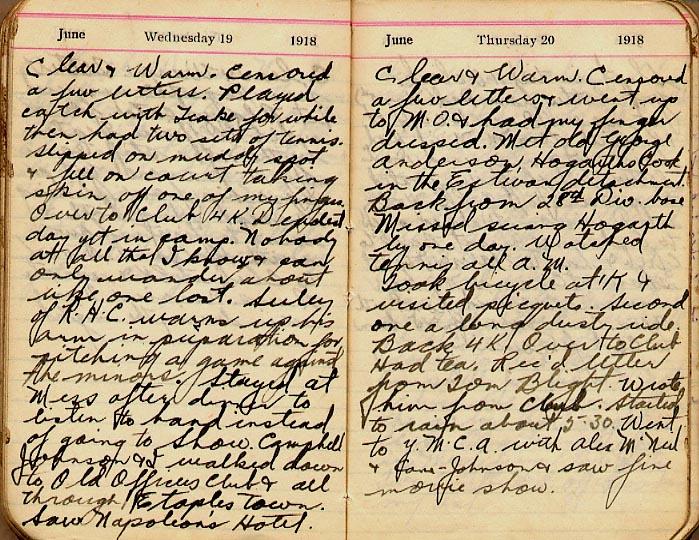 June Wednesday 19 1918
Clear & Warm. Censored
a few letters. Played
catch with Leake for while
then had two sets of tennis.
Slipped on muddy spot
& fell on court taking
skin off one of my fingers.
Over to Club 4 K. Deadest
day yet in camp. Nobody
at all that I know & can
only wander about
like one lost.
of R.H.C. warms up his
arm in preparation for
pitching a game against
the minors. Stayed at
Mess after dinner to
listen to band instead
of going to Show. Campbell
Johnson & I walked down
to Old Officers Club & all
through Etaples town.
Saw Napoleon's Hotel.
June Thursday 20 1918
Clear & Warm. Censored
a few letters & went up
to M.O. & had my finger
dressed. Met old George
Anderson, Hogarths Cook
in the detachment.
Back from 2nd Div. base
Missed seeing Hogarth
by one day. Watched
tennis all A.M.
Took bicycle at K &
visited picquets. Second
one a long dusty ride.
Back 4 K. Over to Club
Had tea. Rec'd letter
from Tom Blight. Wrote
him from Club. Started
to rain about 5-30. Went
to Y.M.C.A. with Alex McNeil
& Johnson & saw fine
movie show.